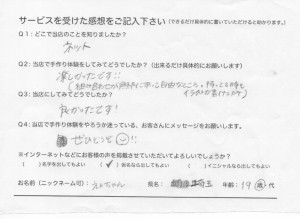 サービスを受けた感想をご記入下さい（できるだけ具体的に書いていただけると助かります。）
Q1：どこで当店のことを知りましたか？
ネット
Q2：当店で手作り体験をしてみてどうでしたか？（出来るだけ具体的にお願いします）
楽しかったです!!
Q3：当店にしてみてどうでしたか？
良かったです!
Q4：当店で手作り体験をやろうか迷っている、お客さんにメッセージをお願いします。
ぜひどうぞ
※インターネットなどにお客様の声を掲載させていただいてよろしいでしょうか？
（　）名字を出してもよい　（　）仮名なら出してもよい　（　）イニシャルなら出してもよい
お名前（ニックネーム可）　ちゃん　県名：埼玉　年齢：19歳代